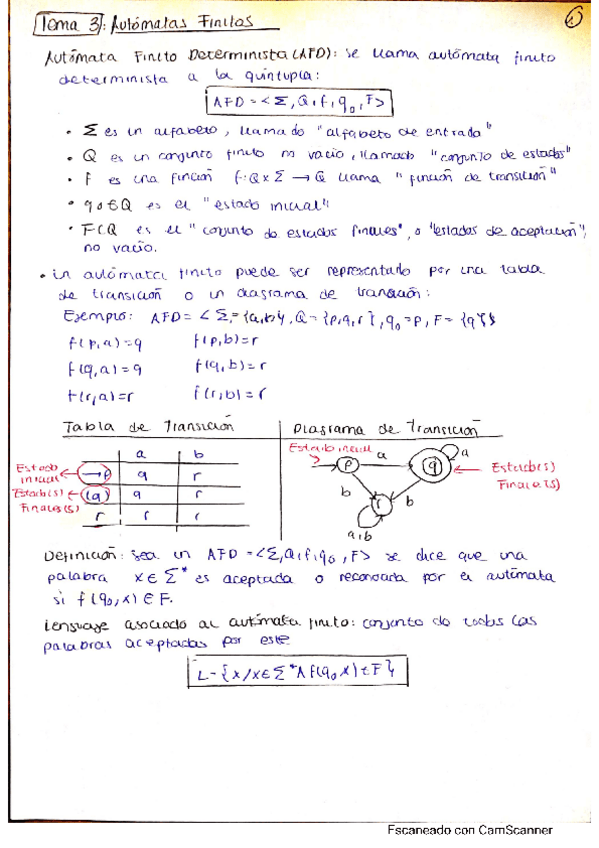 Tema 3: Autómatas Finitos
1
Autómata Finito Determinista (AFD): se llama autómata finito
determinista a la quintupla:
AFD = <Σ, Q, f, q₀, F>
• Σ es un alfabeto, llamado "alfabeto de entrada"
• Q es un conjunto finito no vacío, llamado "conjunto de estados"
• f es una función f: Q x Σ → Q llama "función de transición"
• q₀ ∈ Q es el "estado inicial"
• F ⊂ Q es el "conjunto de estados finales", o "estados de aceptación",
no vacío.
• Un autómata finito puede ser representado por una tabla
de transición o un diagrama de transición:
Ejemplo: AFD = < Σ = {a,b}, Q = {p,q,r}, q₀ = p, F = {q}>
f(p,a) = q f(p,b) = r
f(q,a) = q f(q,b) = r
f(r,a) = r f(r,b) = r
Tabla de Transición
a b
Estado inicial → p q r
Estado(s) Finales(s) (q) q r
r r r
Diagrama de Transición
Estado inicial
p a q a
b b
r
a,b
Estado(s)
Final(es)
Definición: Sea un AFD = <Σ, Q, f, q₀, F> se dice que una
palabra x ∈ Σ* es aceptada o reconocida por el autómata
si f(q₀, x) ∈ F.
Lenguaje asociado al autómata finito: conjunto de todas las
palabras aceptadas por este
L = {x / x ∈ Σ* ∧ f(q₀, x) ∈ F}
Escaneado con CamScanner